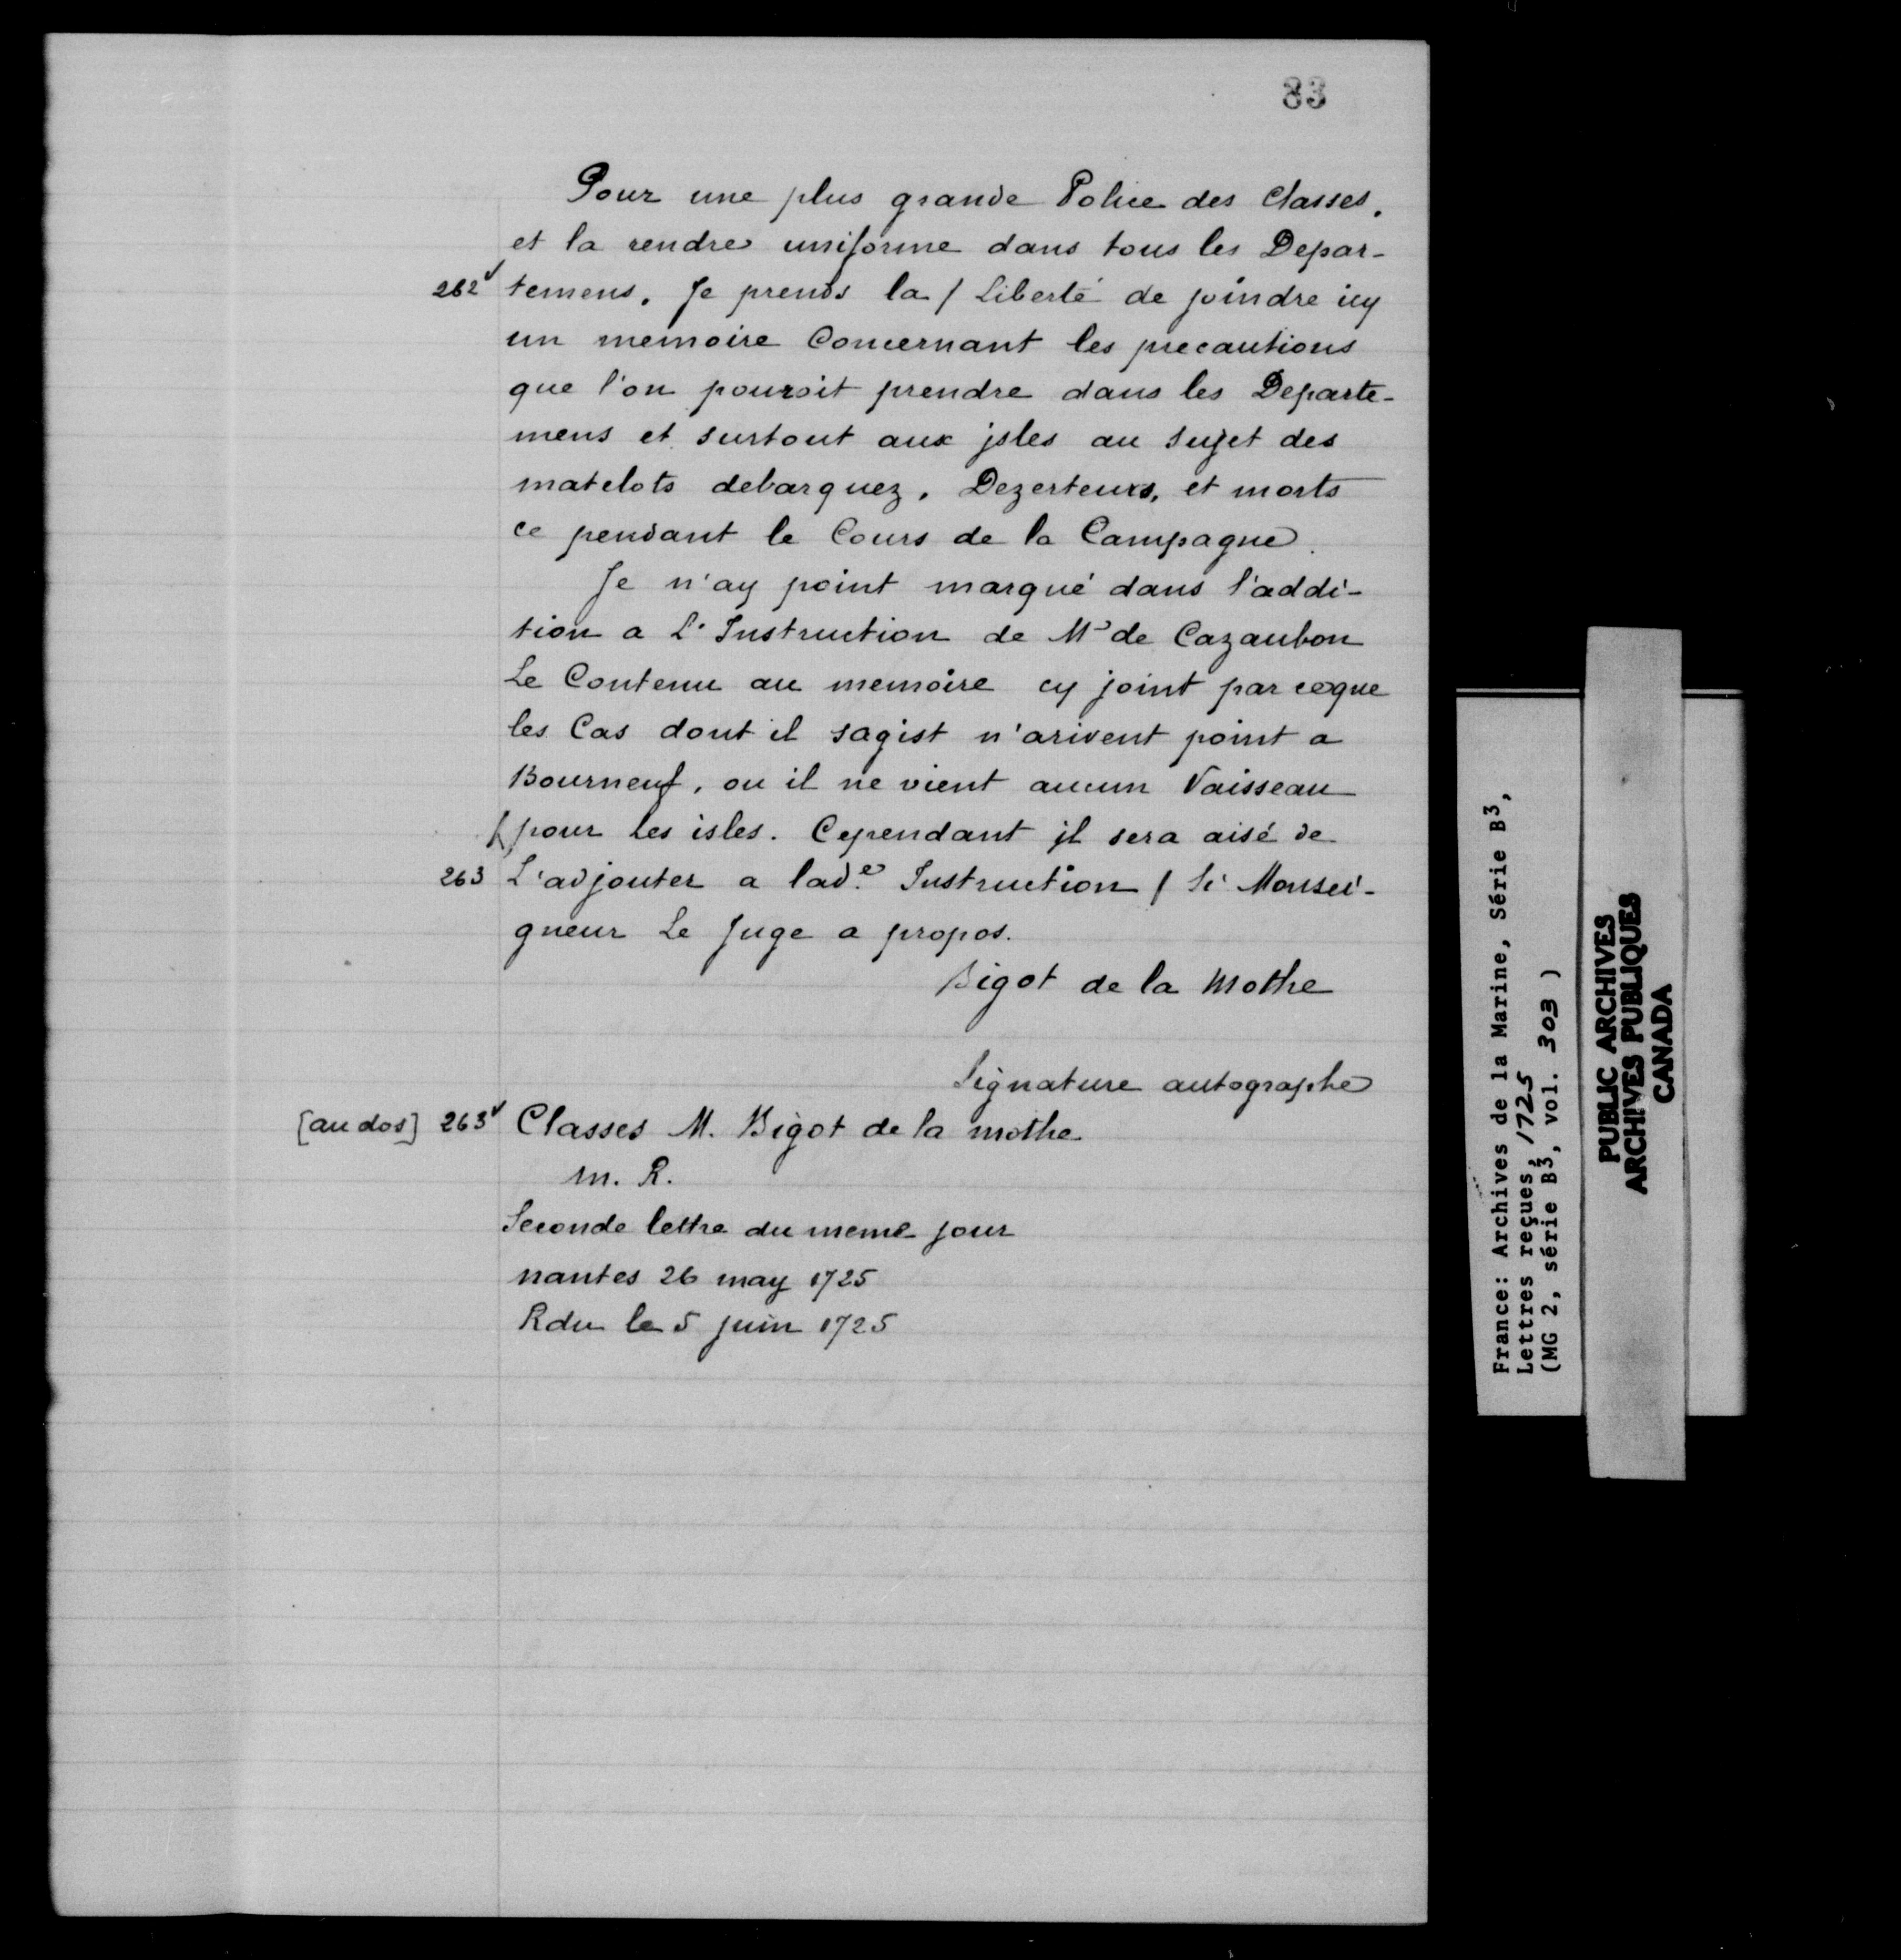 83
Pour une plus grande Police des Classes,
et la rendre uniforme dans tous les Depar-
262v temens. Je prends la / Liberté de joindre icy
un memoire Concernant les precautions
que l'on pouroit prendre dans les Departe-
mens et surtout aux jsles au sujet des
matelots debarquez, Dezerteurs, et morts
ce pendant le Cours de la Campagne.
Je n'ay point marqué dans l'addi-
tion a L'Instruction de Mr de Cazaubon
Le Contenu au memoire cy joint par ceque
les Cas dont il sagist n'arivent point a
Bourneuf, ou il ne vient aucun Vaisseau
pour les isles. Cependant jl sera aisé de
263 L'adjouter a lad.e Instruction / Si Monsei-
gneur Le Juge a propos.
Bigot de la Mothe
Signature autographe
[au dos] 263v Classes M. Bigot de la mothe
m. R.
Seconde lettre du meme jour
nantes 26 may 1725
Rdu le 5 juin 1725
France: Archives de la Marine, Série B3,
Lettres reçues, 1725
(MG 2, série B3, vol. 303 )
PUBLIC ARCHIVES
ARCHIVES PUBLIQUES
CANADA